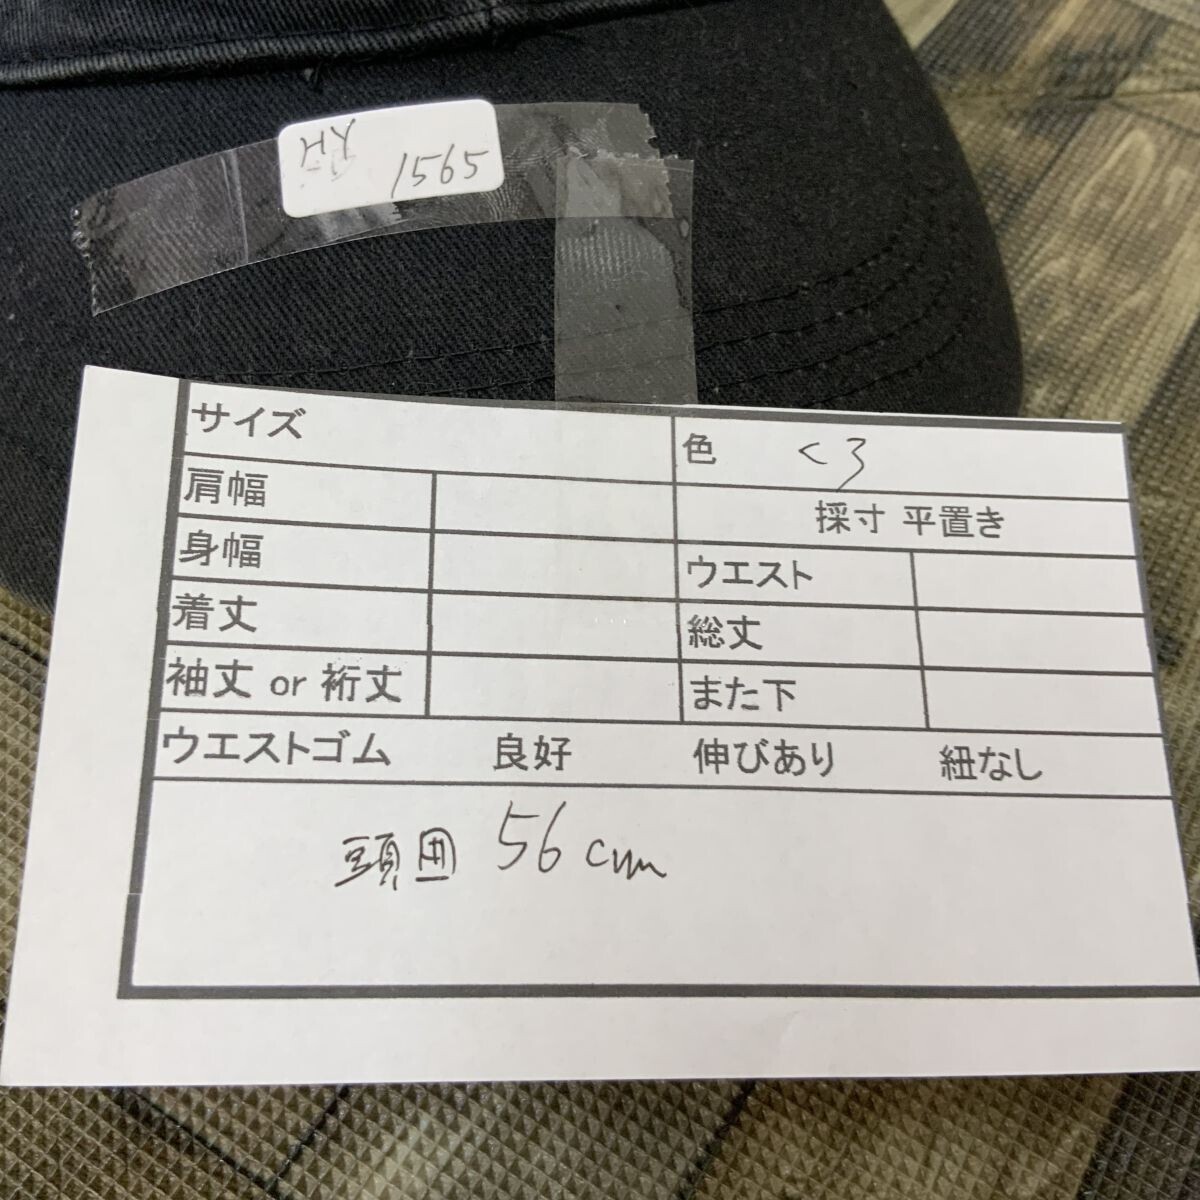 1565
サイズ
色 くろ
肩幅
採寸 平置き
身幅
ウエスト
着丈
総丈
袖丈 or 裄丈
また下
ウエストゴム 良好 伸びあり 紐なし
頭囲 56cm